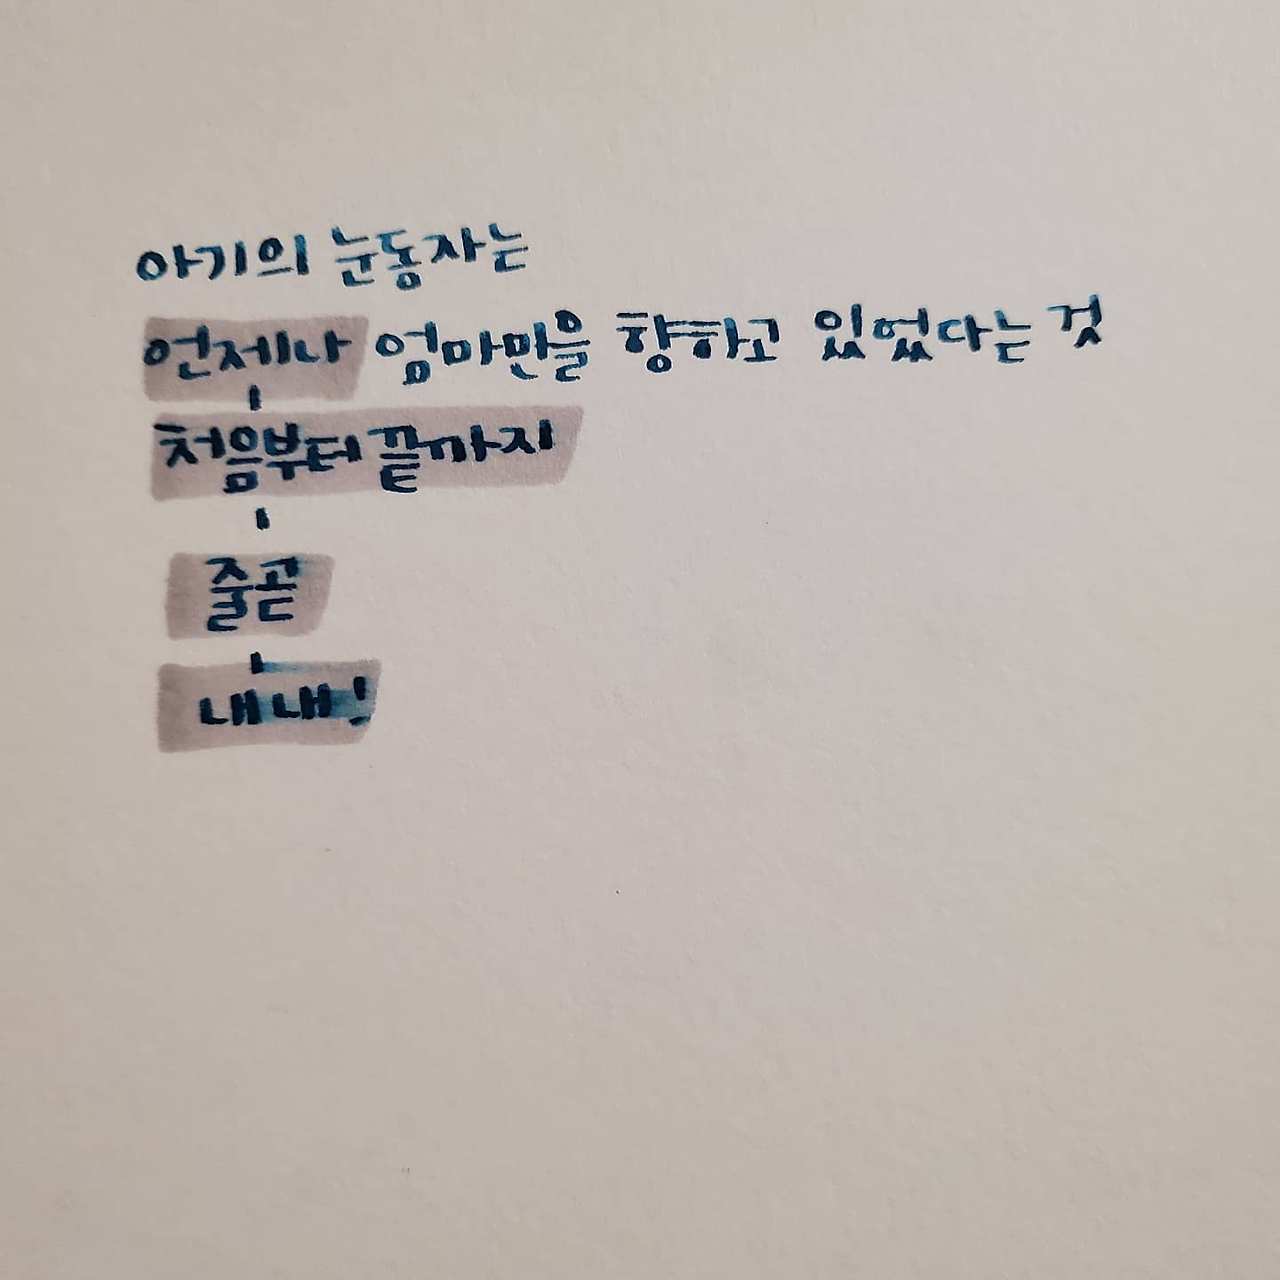 아기의 눈동자는
언제나 엄마만을 향하고 있었다는 것
처음부터 끝까지
줄곧
내내!